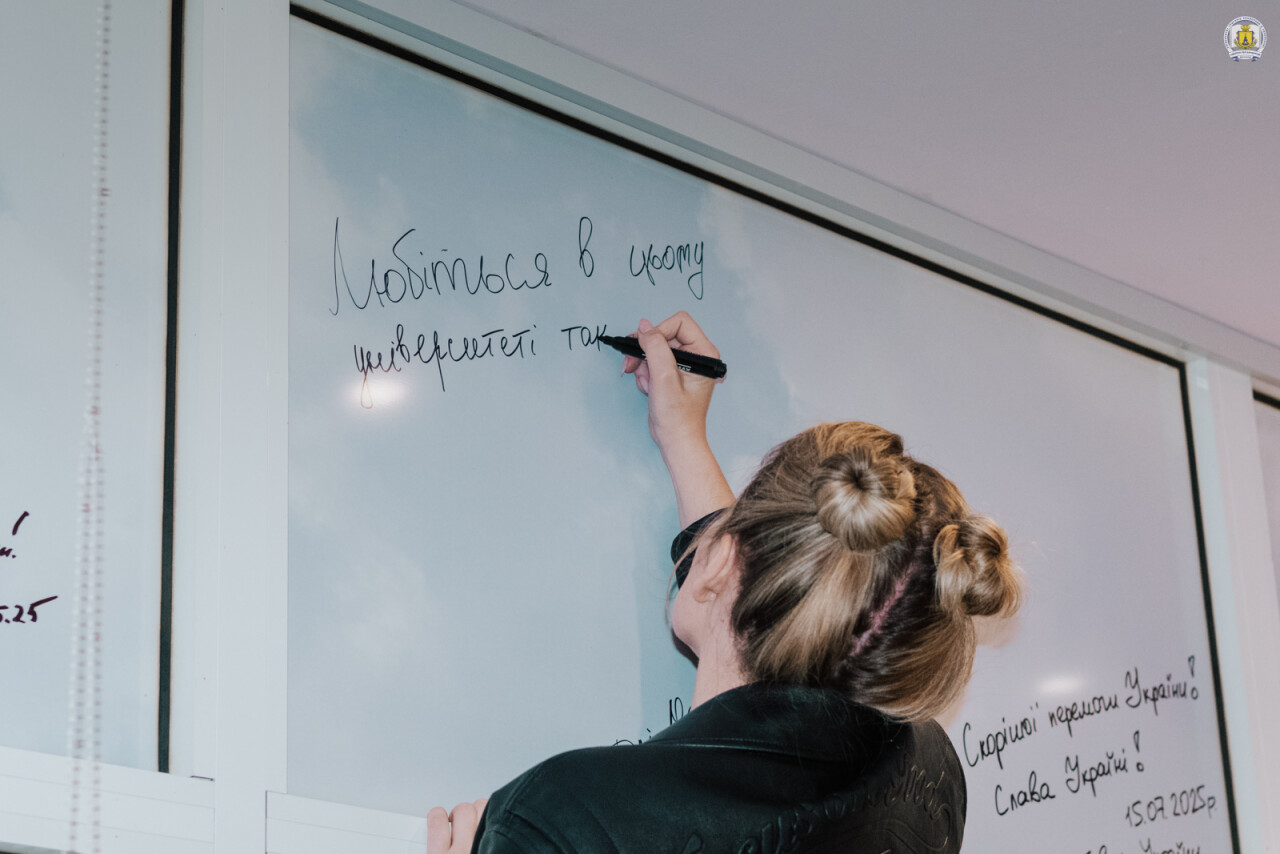 Любіться в цьому
університеті так
Скорішої перемоги Україні!
Слава Україні!
15.07.2025р
5.25